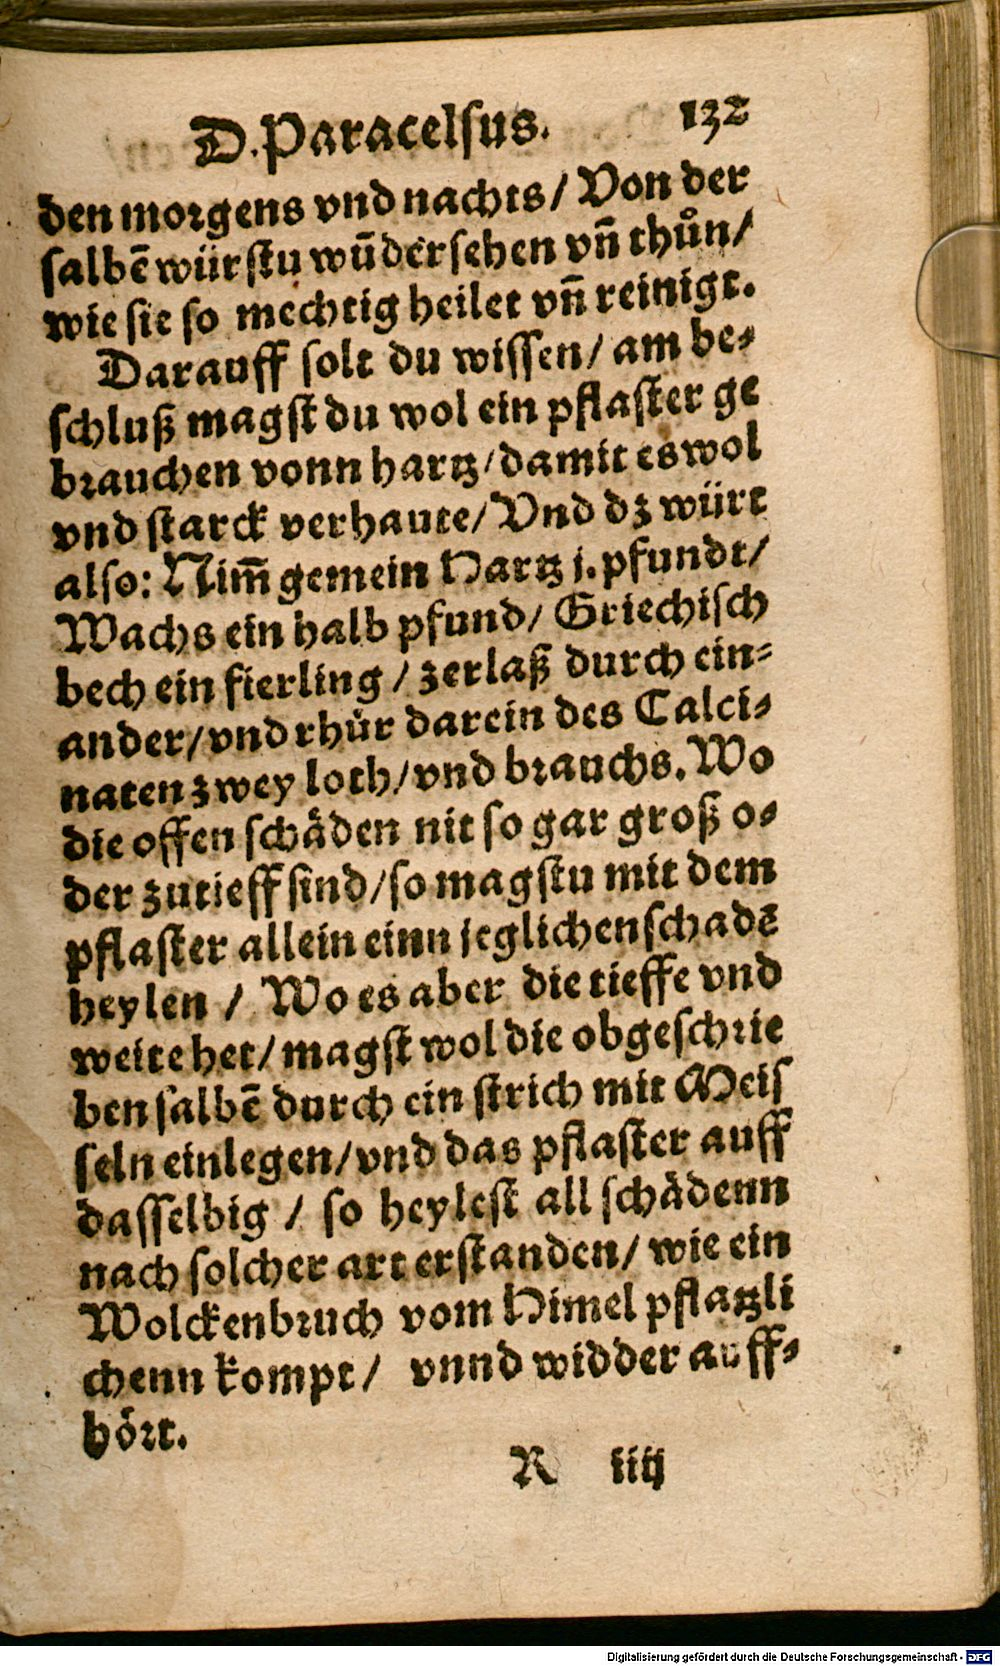 D. Paracelsus. 132
den morgens vnd nachts / Von der
salbē würstu wūder sehen vn̄ thůn /
wie sie so mechtig heilet vn̄ reinigt.
Darauff solt du wissen / am be⸗
schluß magst du wol ein pflaster ge
brauchen vonn hartz / damit es wol
vnd starck verhaute / Vnd dz würt
also: Nim̄ gemein Hartz j. pfundt /
Wachs ein halb pfund / Griechisch
bech ein fierling / zerlaß durch ein⸗
ander / vnd rhůr darein des Calci⸗
naten zwey loth / vnd brauchs. Wo
die offen schåden nit so gar groß o⸗
der zutieff sind / so magstu mit dem
pflaster allein einn jeglichen schadē
heylen / Wo es aber die tieffe vnd
weite het / magst wol die obgeschrie
ben salbē durch ein strich mit Meis
seln einlegen / vnd das pflaster auff
dasselbig / so heylest all schådenn
nach solcher art erstanden / wie ein
Wolckenbruch vom Himel pflatzli
chenn kompt / vnnd widder auff⸗
hört.
R iiij
Digitalisierung gefördert durch die Deutsche Forschungsgemeinschaft - DFG